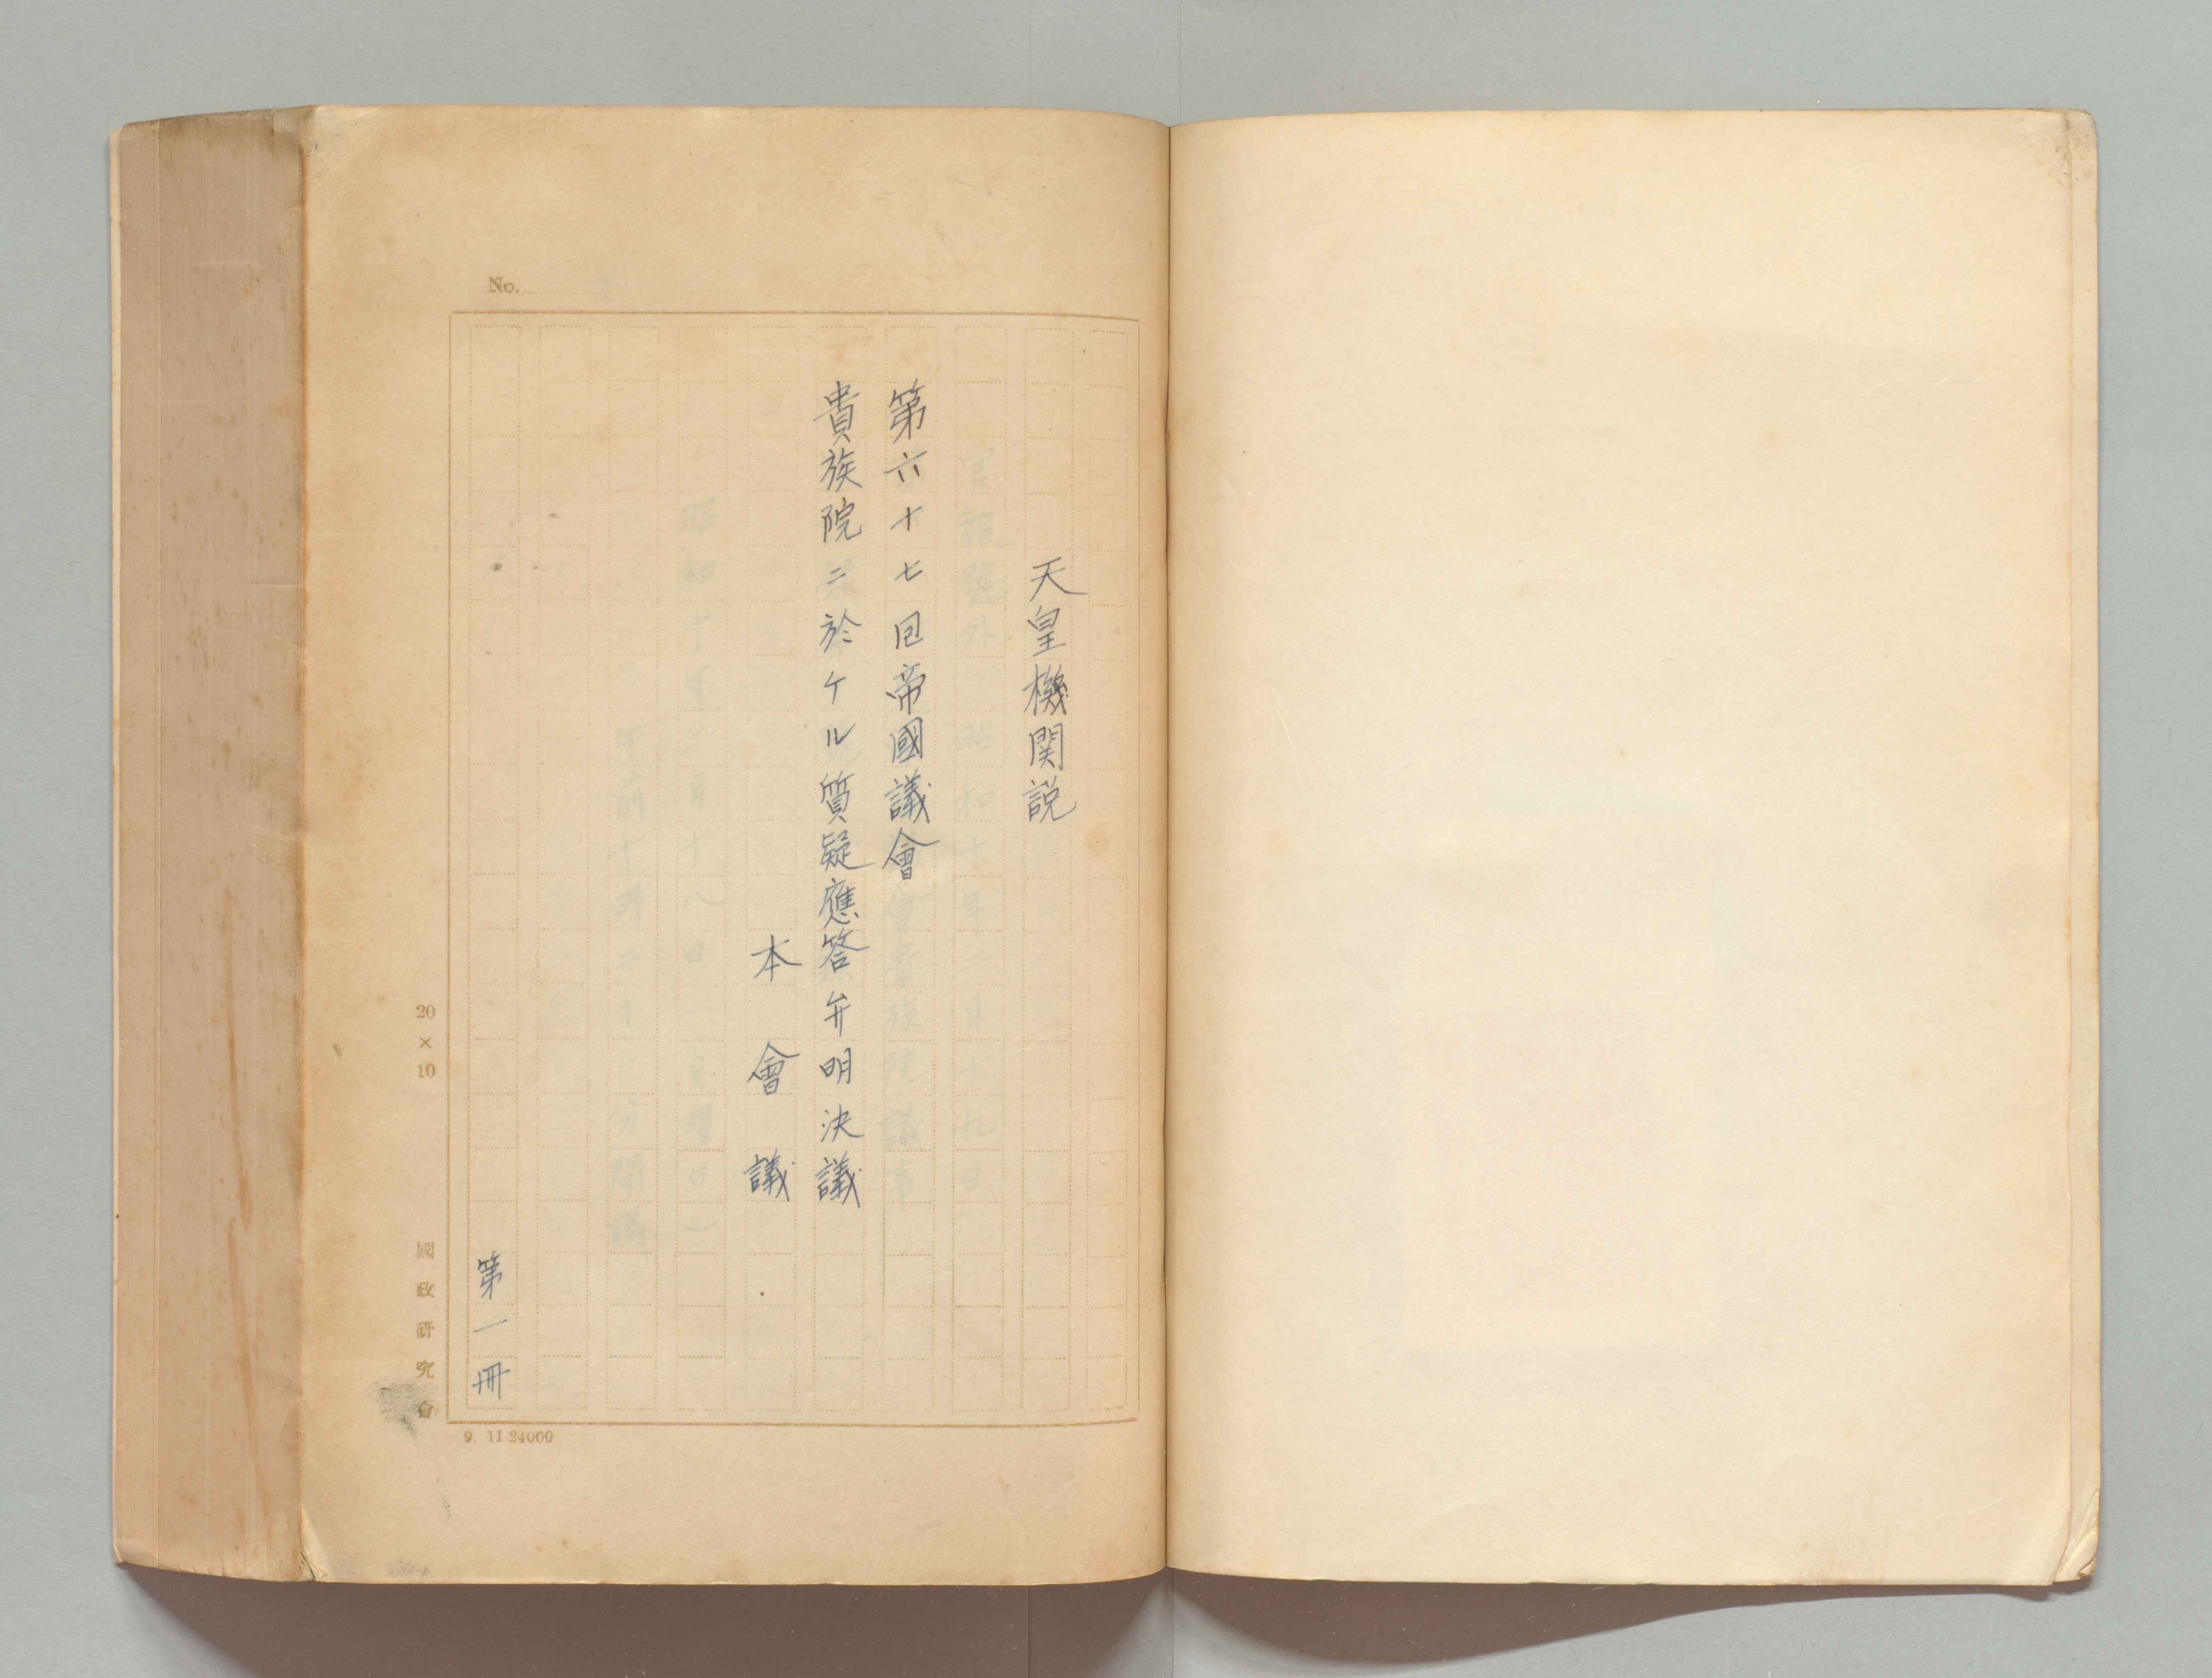 天皇機関説
第六十七回帝國議會
貴族院ニ於ケル質疑應答弁明決議
本會議
第一冊
No.
20×10
國政研究會
9. 11 24000